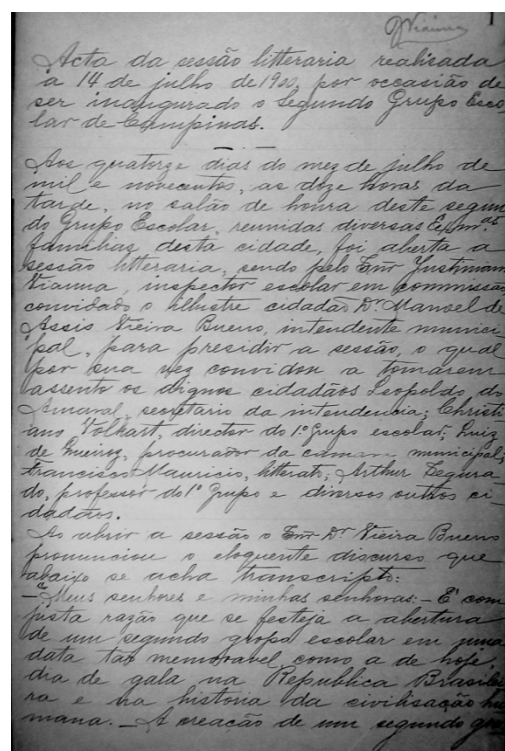 JVianna
1
Acta da sessão litteraria realisada
a 14 de julho de 1900, por occasião de
ser inaugurado o Segundo Grupo Esco-
lar de Campinas.
Aos quatorze dias do mez de julho de
mil e novecentos, as doze horas da
tarde, no salão de honra deste segun
do Grupo Escolar, reunidas diversas Exm.as
familias desta cidade, foi aberta a
sessão litteraria, sendo pelo Snr Justiniano
Vianna, inspector escolar em commissão
convidado o illustre cidadão Dr. Manoel de
Assis Vieira Bueno, intendente munici-
pal, para presidir a sessão, o qual
por sua vez convidou a tomarem
assento os dignos cidadãos Leopoldo do
Amaral, secretario da intendencia; Christi
ano Volkart, director do 1.º Grupo escolar; Luiz
de Queiroz, procurador da camara municipal;
Francisco Mauricio, litterato; Arthur Segura
do, professor do 1º Grupo e diversos outros ci-
dadãos.
Ao abrir a sessão o Snr Dr Vieira Bueno
pronunciou o eloquente discurso que
abaixo se acha transcripto:
—"Meus senhores e minhas senhoras: — E' com
justa razão que se festeja a abertura
de um segundo grupo escolar em uma
data tão memoravel como a de hoje,
dia de gala na Republica Brasilei
ra e na historia da civilisação hu
mana. — A creação de um segundo gru